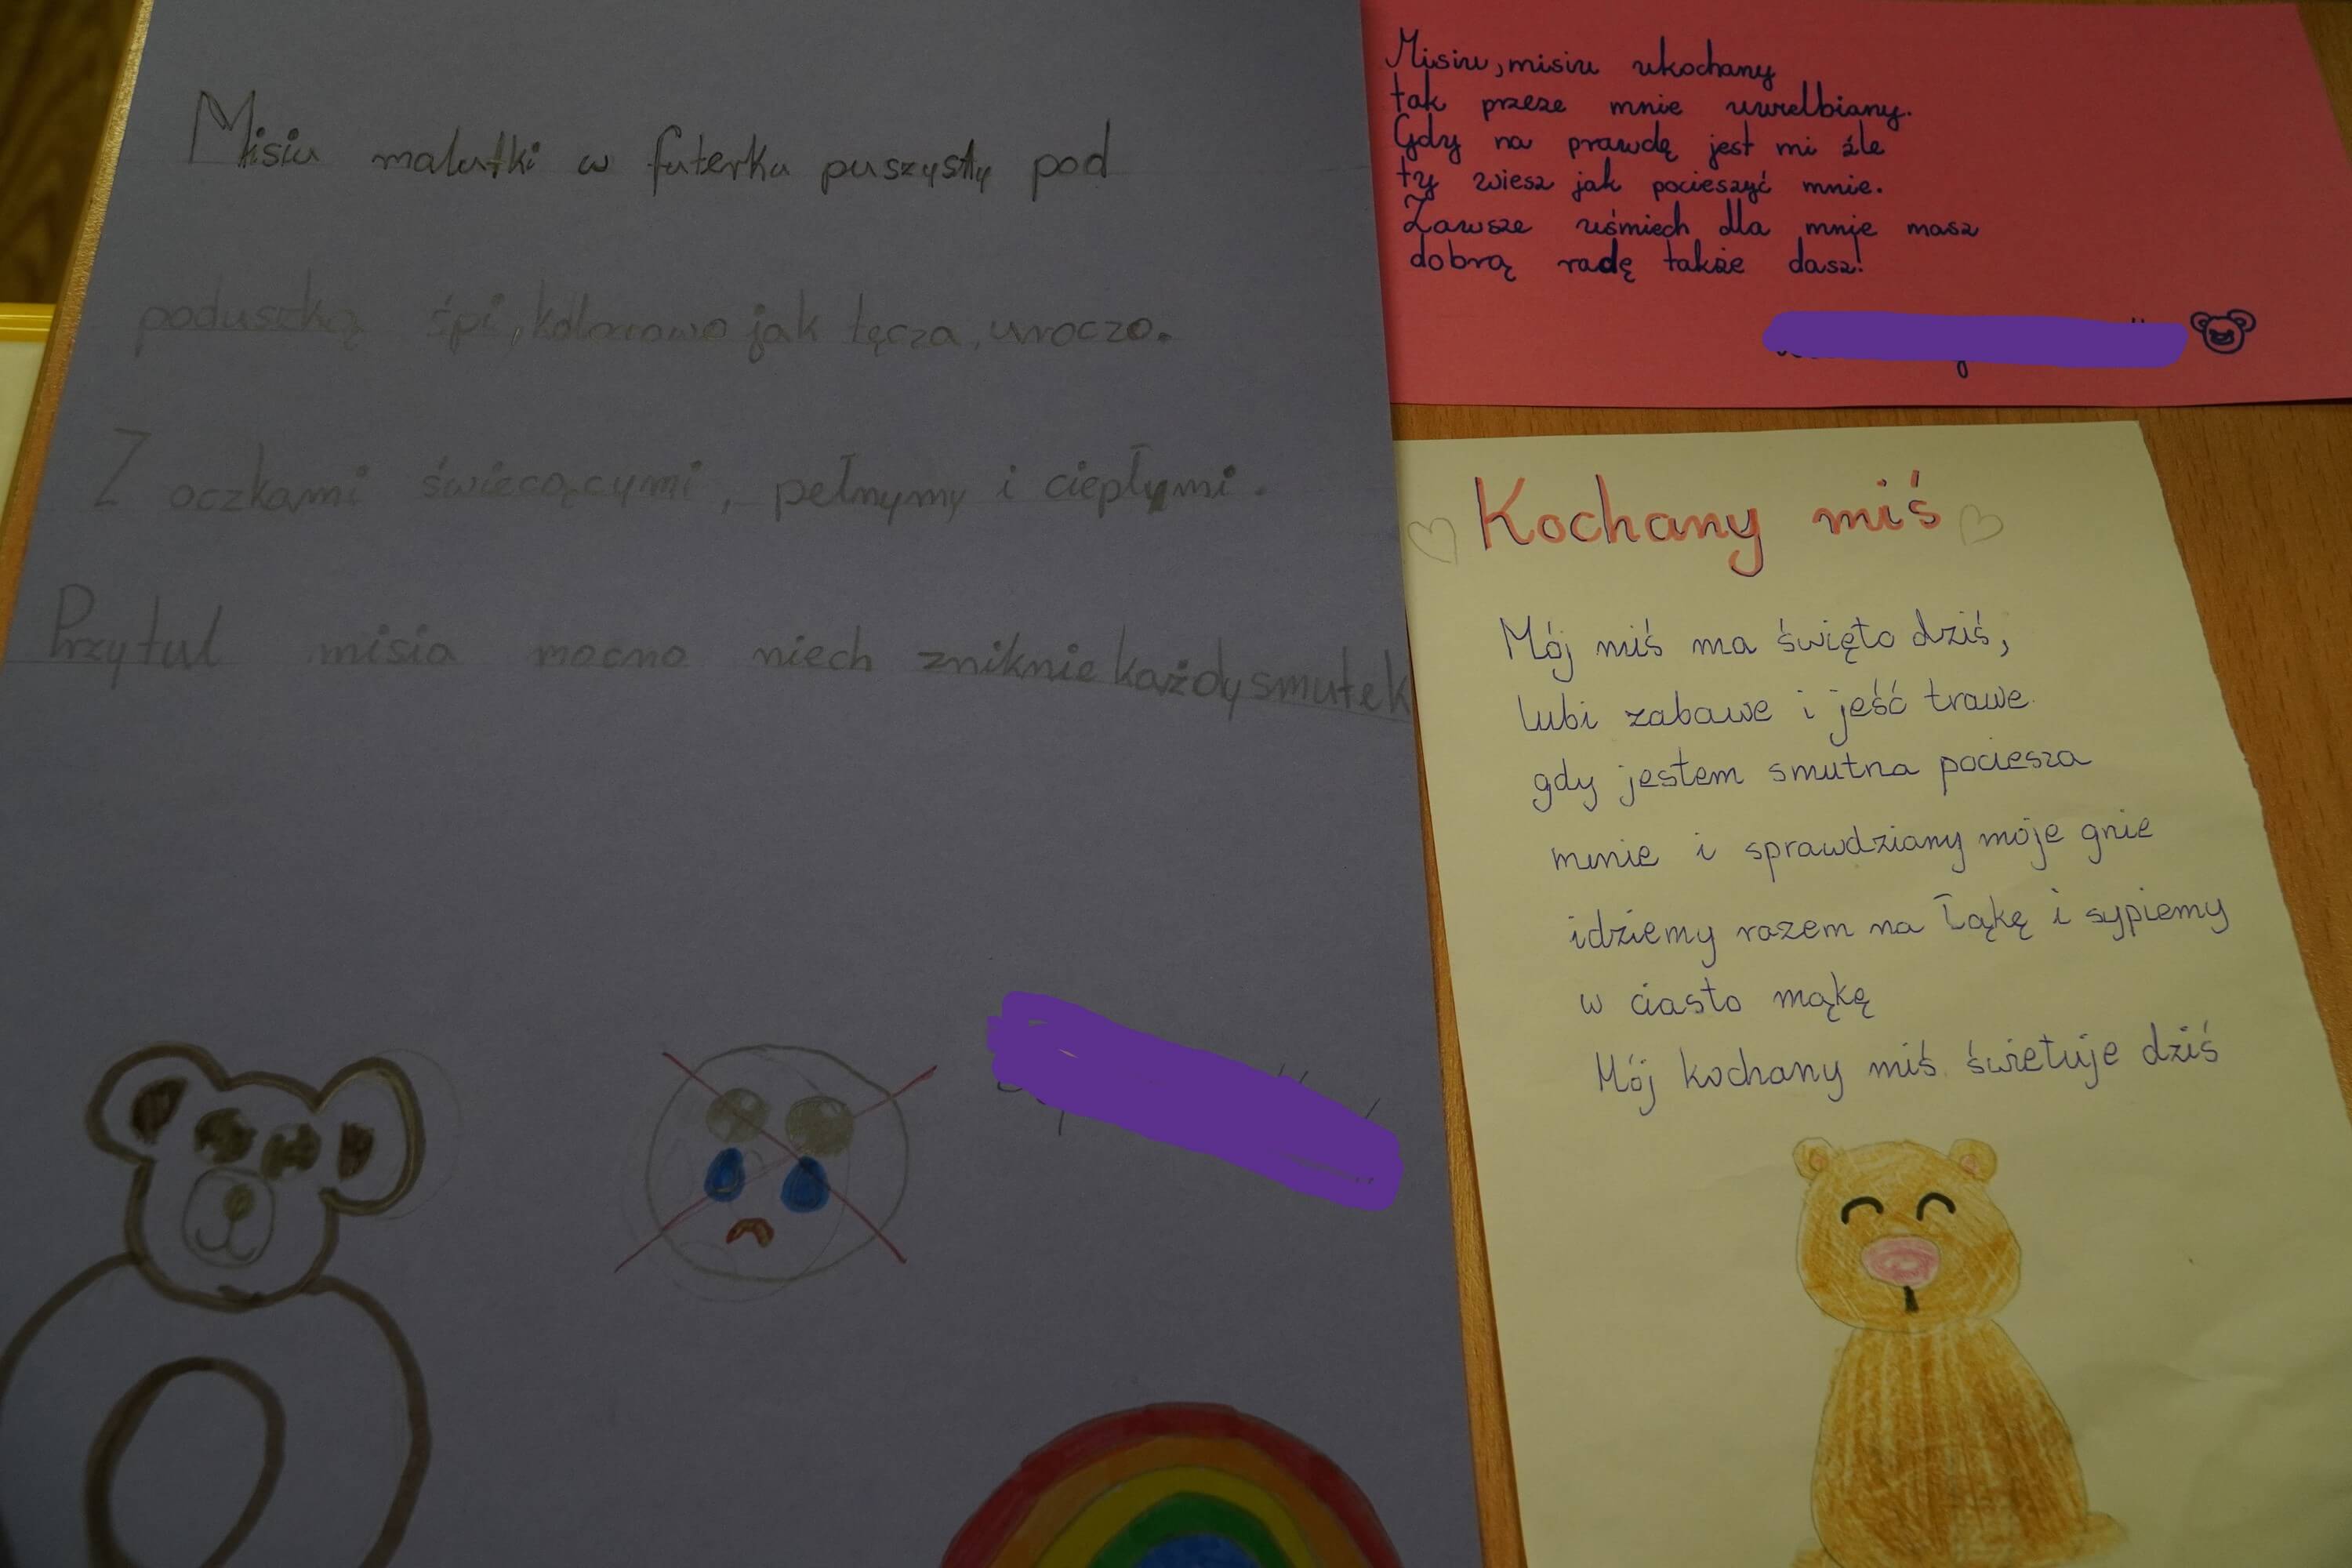 Misiu malutki w futerku puszysty pod
poduszką śpi, kolorowo jak tęcza, uroczo.
Z oczkami świecącymi, pełnymy i ciepłymi.
Przytul misia mocno niech zniknie każdy smutek
Misiu, misiu ukochany
tak przeze mnie uwielbiany.
Gdy na prawdę jest mi źle
ty wiesz jak pocieszyć mnie.
Zawsze uśmiech dla mnie masz
dobrą radę także dasz!
Kochany miś
Mój miś ma święto dziś,
lubi zabawe i jeść trawe
gdy jestem smutna pociesza
mnie i sprawdziany moje gnie
idziemy razem na łąkę i sypiemy
w ciasto mąkę
Mój kochany miś świetuje dziś